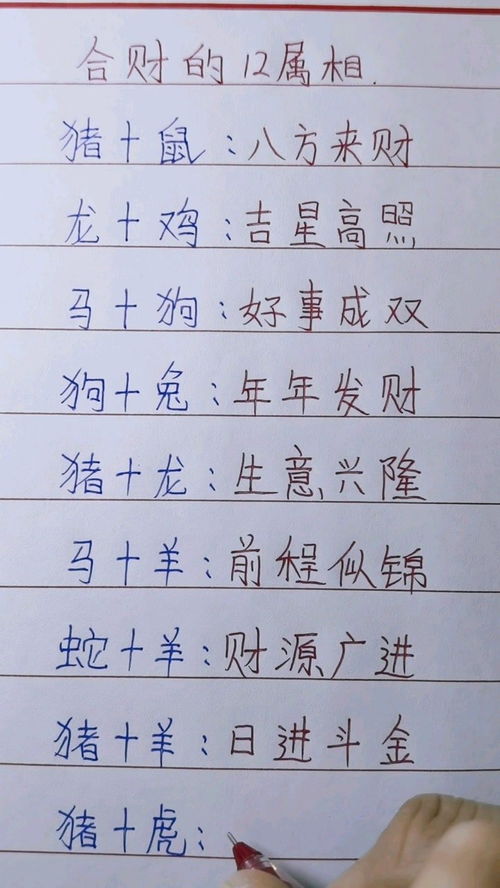 合财的12属相.
猪十鼠:八方来财
龙十鸡:吉星高照
马十狗:好事成双
狗十兔:年年发财
猪十龙:生意兴隆
马十羊:前程似锦
蛇十羊:财源广进
猪十羊:日进斗金
猪十虎: